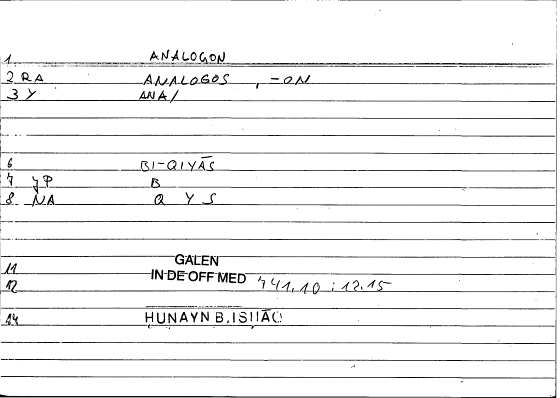 1 ANALOGON
2 RA ANALOGOS , -ON
3 Y ANA/
6 BI-QIYĀS
7 JP B
8 NA Q Y S
11 GALEN
12 IN DE OFF MED 741.10 : 12.15
14 ḤUNAYN B. ISḤĀQ